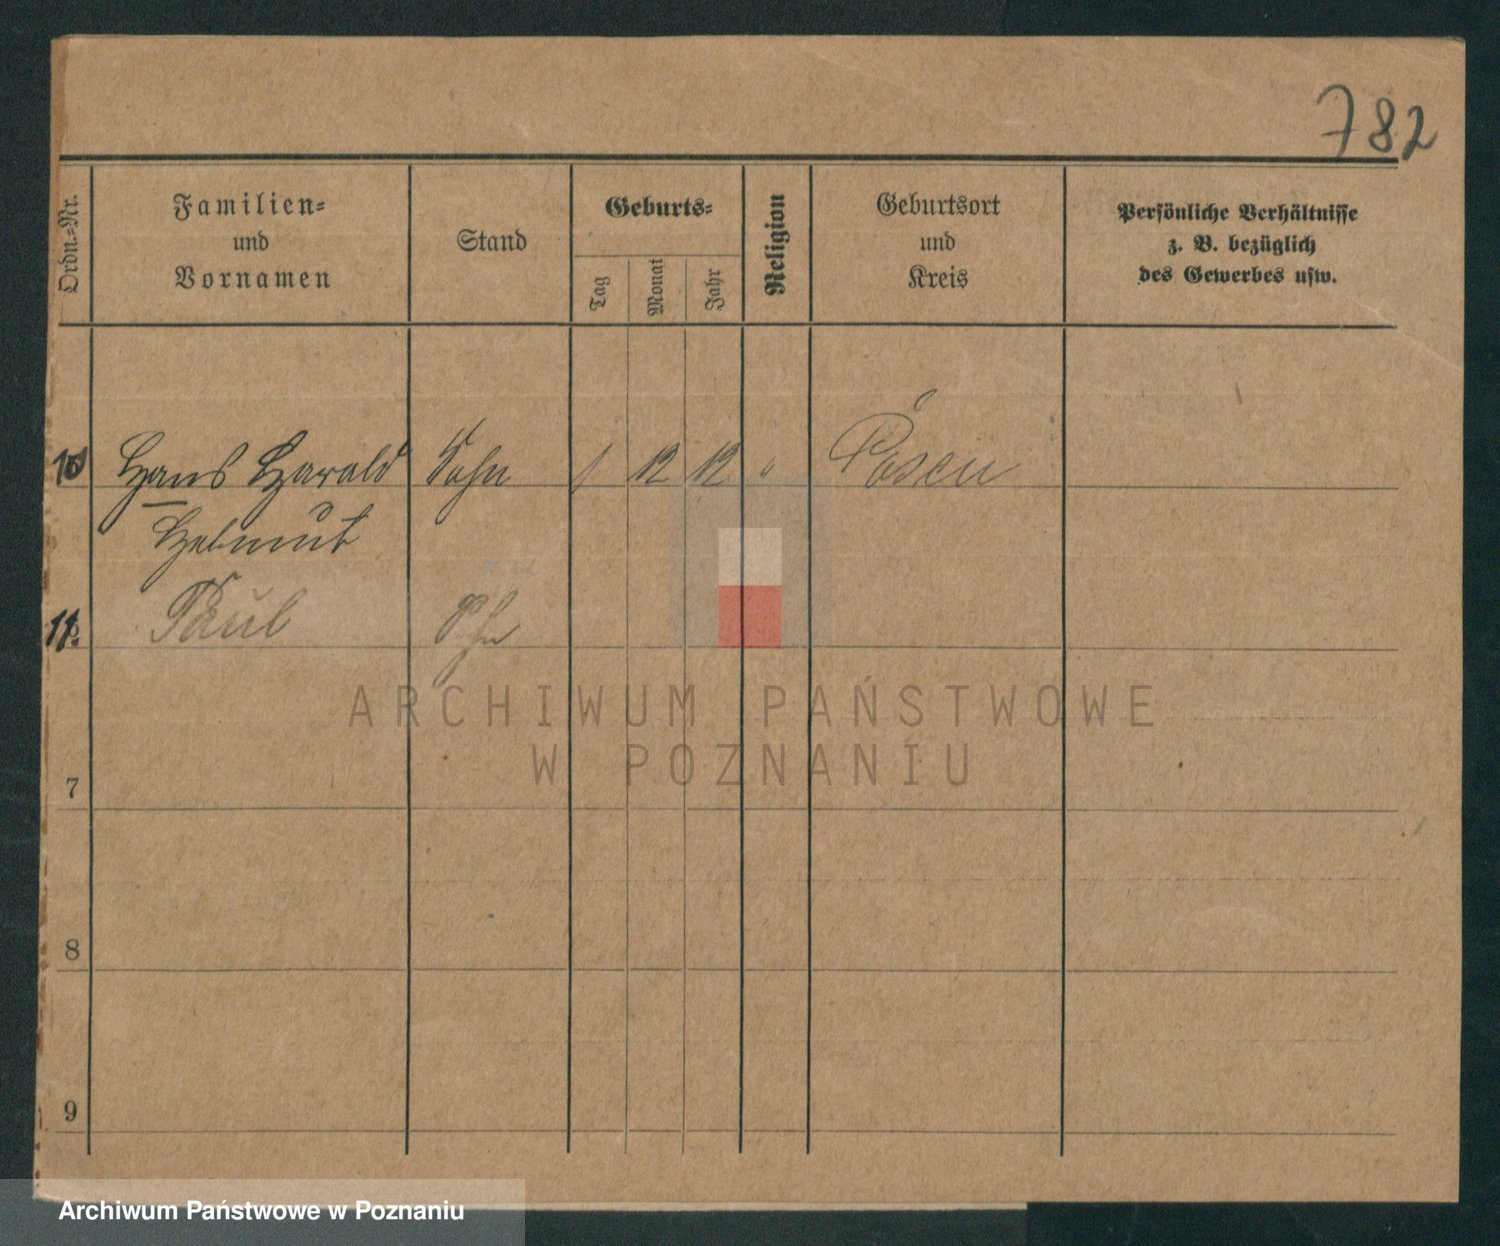 782
Ordn.-Nr.
Familien-
und
Vornamen
Stand
Geburts-
Tag
Monat
Jahr
Religion
Geburtsort
und
Kreis
Persönliche Verhältnisse
z. B. bezüglich
des Gewerbes usw.
10 Hans Harald Sohn 1 12 12 " Posen
Helmut
11. Paul Sohn
ARCHIWUM PAŃSTWOWE
W POZNANIU
7
8
9
Archiwum Państwowe w Poznaniu